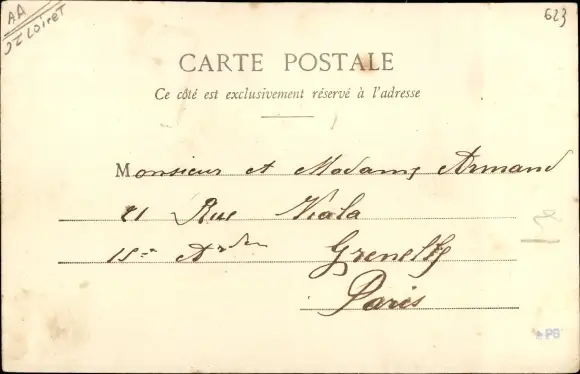 AA
623
Loiret
CARTE POSTALE
Ce côté est exclusivement réservé à l'adresse
Monsieur et Madame Armand
21 Rue Viala
15me Ardm Grenelle
Paris
PB